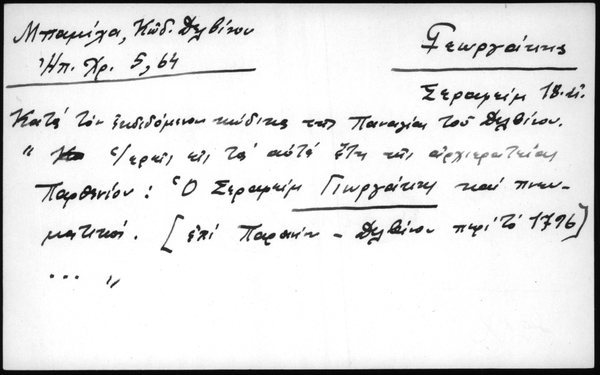 Μπαμίχα, Κώδ. Δελβίνου
Ἠπ. Χρ. 5, 64
Γεωργάκης
Σεραφείμ 18. αἰ.
Κατά τόν ἐκδιδόμενον κώδικα τῆς Παναγίας τοῦ Δελβίνου.
" Ἱερεῖς εἰς τά αὐτά ἔτη τῆς ἀρχιερατείας
Παρθενίου: Ὁ Σεραφείμ Γιωργάκης καί πνευ-
ματικοί. [ἐπί Παρθενίου - Δελβίνου περί τό 1796]
... "